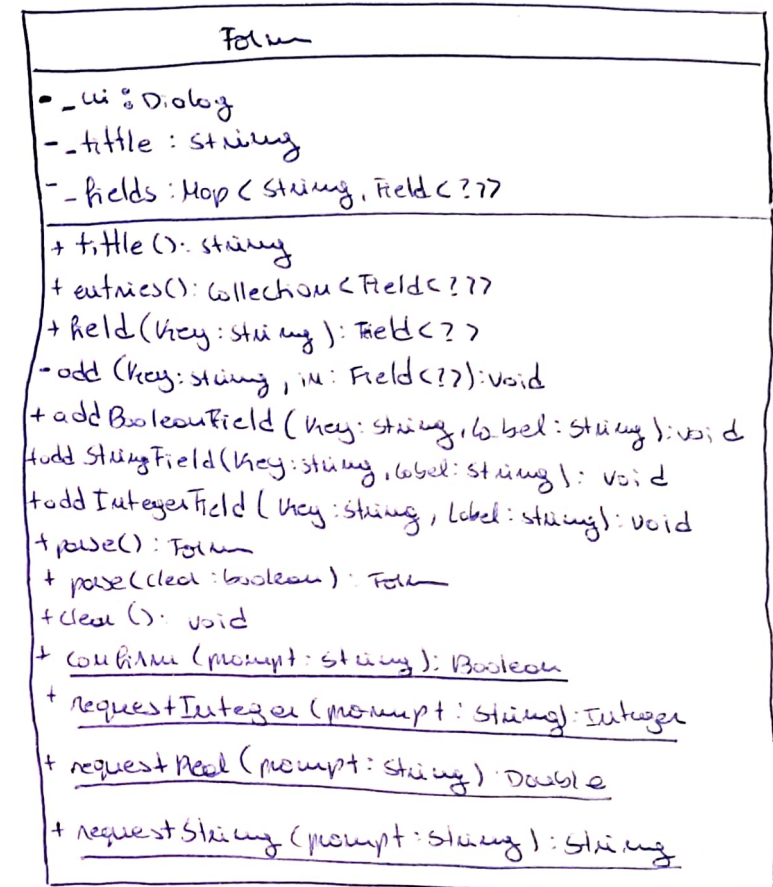 Form
- _ui : Dialog
- _tittle : String
- _fields : Map < String, Field <?>>
+ tittle (): String
+ entries(): Collection < Field<?>>
+ field (key : String) : Field <?>
- add (key: string, in: Field<?>): void
+ addBooleanField (key: String, label: String): void
+ add StringField (key: string, label: String): void
+ add IntegerField (key : String, label : string): void
+ parse() : Form
+ parse(clear : boolean) : Form
+ clear (): void
+ confirm (prompt : String): Boolean
+ requestInteger (prompt : String): Integer
+ requestReal (prompt : String): Double
+ requestString (prompt : String) : String